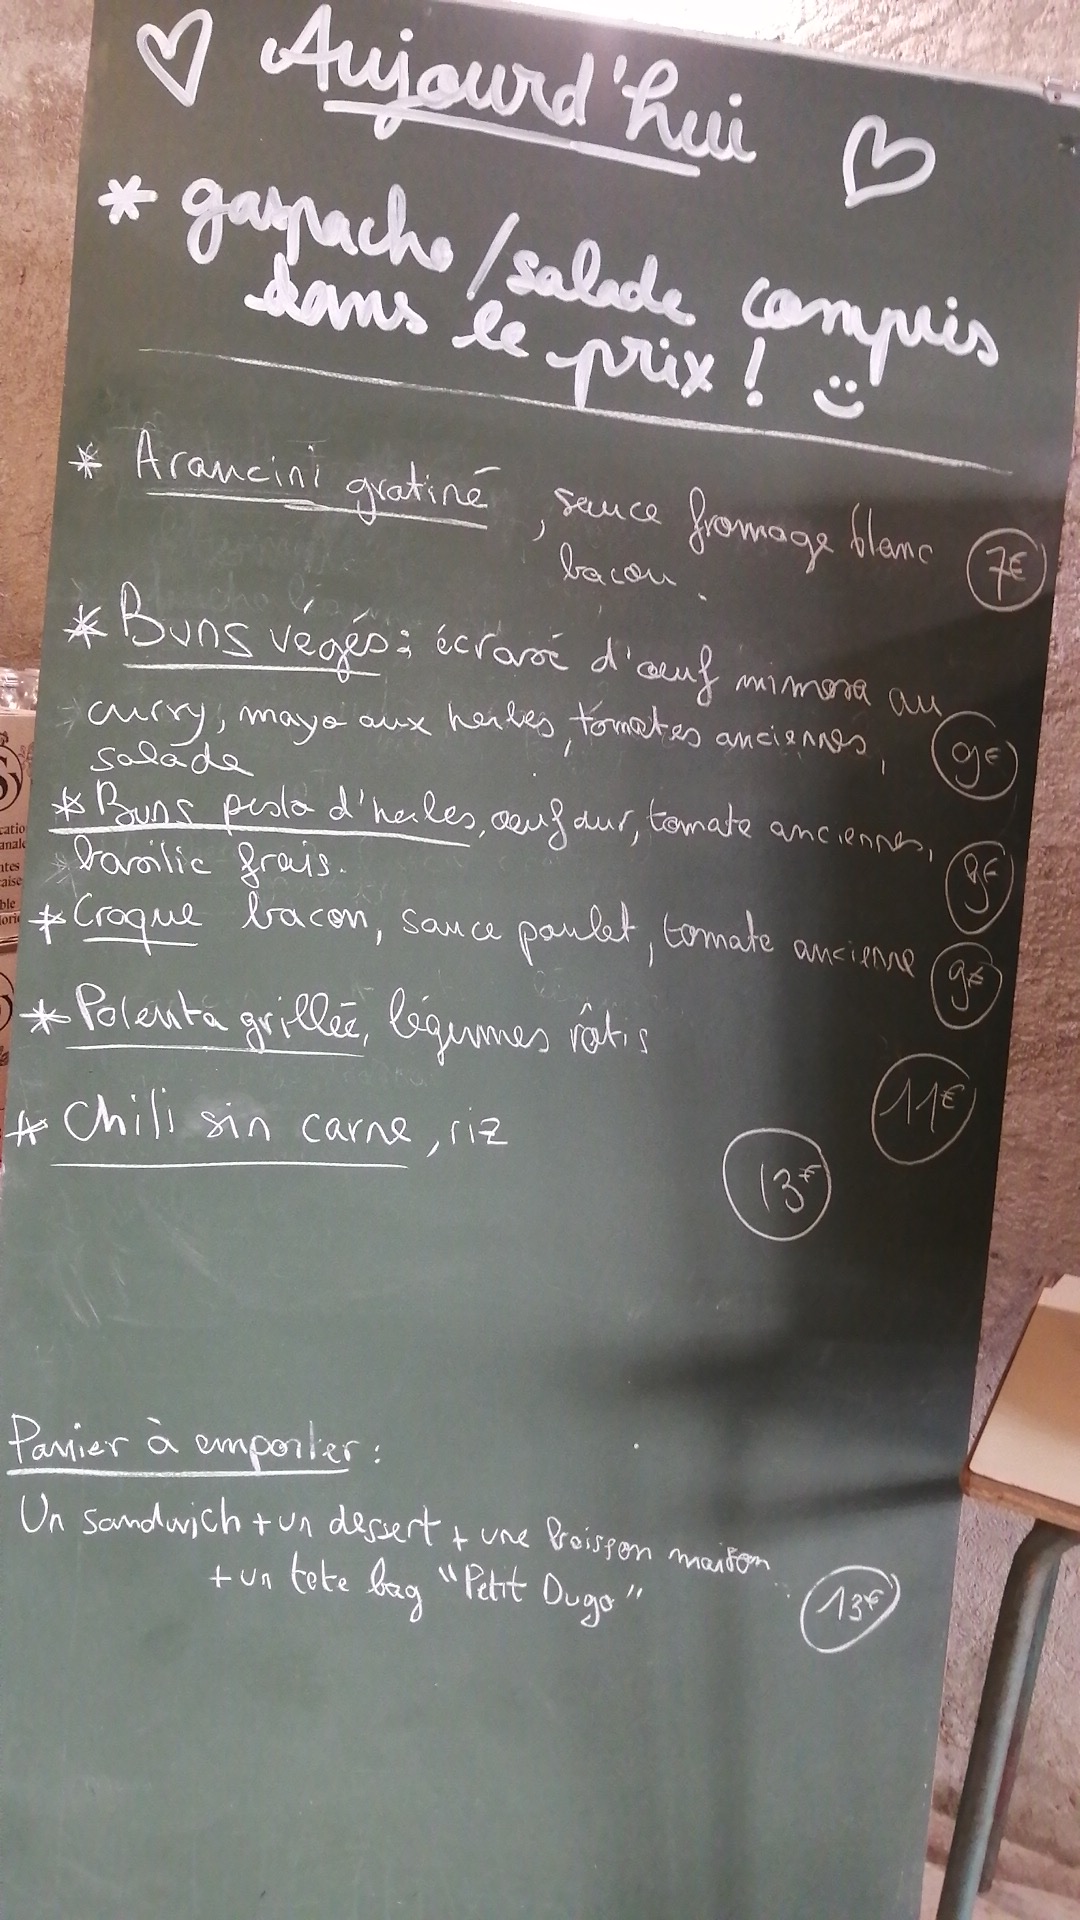 Aujourd'hui
* gaspacho / salade compris
dans le prix !
* Arancini gratiné, sauce fromage blanc
bacon. 7€
* Buns végés : écrasé d'œuf mimosa au
curry, mayo aux herbes, tomates anciennes, 9€
salade
* Buns pesto d'herbes, œuf dur, tomate anciennes,
basilic frais.
* Croque bacon, sauce poulet, tomate ancienne 9€
* Polenta grillée, légumes rôtis 11€
* Chili sin carne, riz 13€
Panier à emporter :
Un sandwich + un dessert + une boisson maison
+ un tote bag "Petit Dugo" 13€